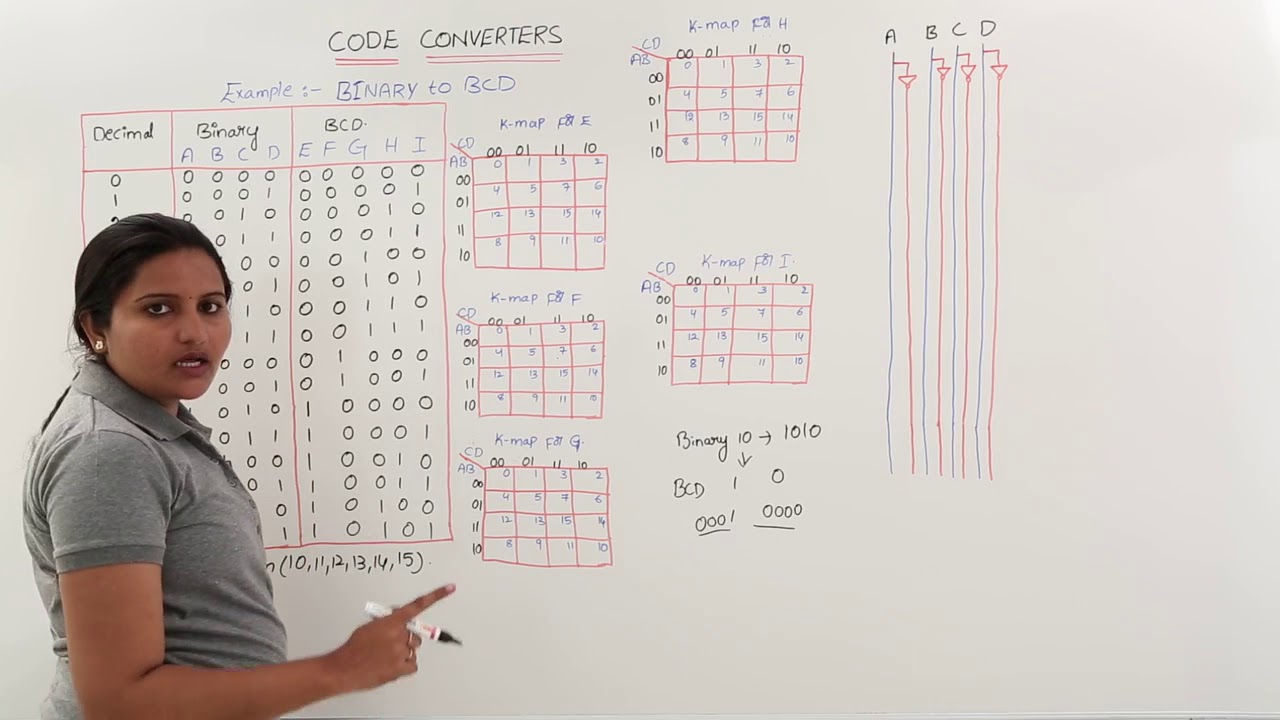 CODE CONVERTERS
Example :- BINARY to BCD
Decimal Binary BCD.
A B C D E F G H I
0 0 0 0 0 0 0 0 0 0
1 0 0 0 1 0 0 0 0 1
0 0 1 0 0 0 0 1 0
0 1 1 0 0 0 1 1
0 0 0 0 1 0 0
0 1 0 0 1 0 1
1 0 0 0 1 1 0
1 0 0 1 1 1
0 0 0 0 1 0 0 0
0 0 1 0 1 0 0 1
0 1 0 1 0 0 0 0
1 1 1 0 0 0 1
0 0 1 0 0 1 0
0 1 1 0 0 1 1
0 1 0 1 0 0
1 1 0 1 0 1
(10,11,12,13,14,15).
K-map For E
CD
AB 00 01 11 10
00 0 1 3 2
01 4 5 7 6
11 12 13 15 14
10 8 9 11 10
K-map For F
CD
AB 00 01 11 10
00 0 1 3 2
01 4 5 7 6
11 12 13 15 14
10 8 9 11 10
K-map For G.
CD
AB 00 01 11 10
00 0 1 3 2
01 4 5 7 6
11 12 13 15 14
10 8 9 11 10
K-map For H
CD
AB 00 01 11 10
00 0 1 3 2
01 4 5 7 6
11 12 13 15 14
10 8 9 11 10
K-map For I.
CD
AB 00 01 11 10
00 0 1 3 2
01 4 5 7 6
11 12 13 15 14
10 8 9 11 10
Binary 10 → 1010
BCD 1 0
0001 0000
A B C D